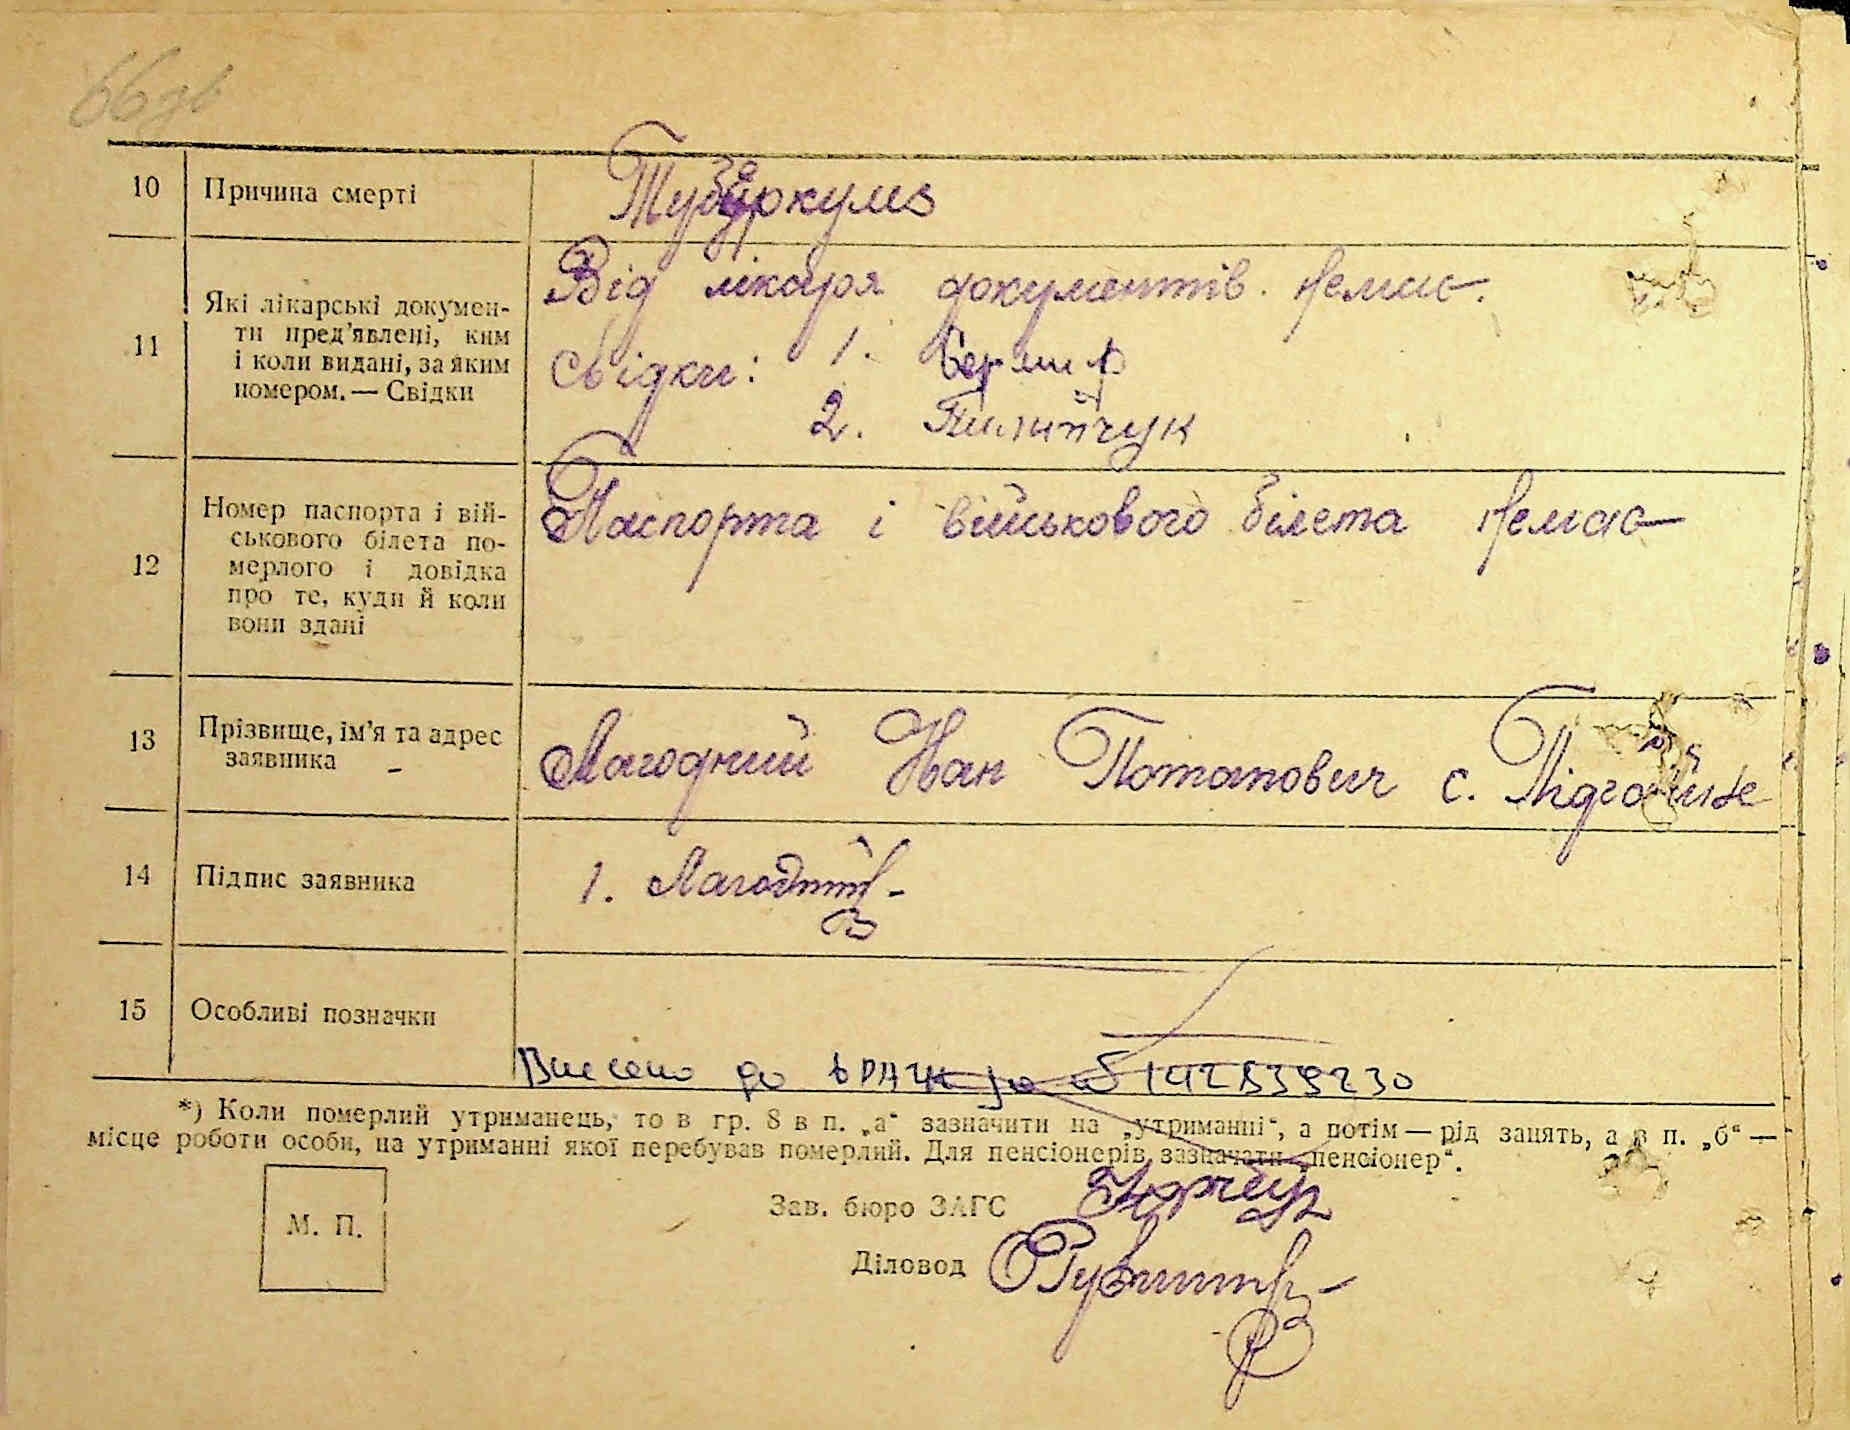 66зв
10 Причина смерті Туберкульоз
11 Які лікарські докумен- Від лікаря документів немає.
ти пред'явлені, ким
і коли видані, за яким Свідки: 1.
номером. — Свідки 2. Пилипчук
12 Номер паспорта і вій- Паспорта і військового білета немає
ськового білета по-
мерлого і довідка
про те, куди й коли
вони здані
13 Прізвище, ім'я та адрес Лагодний Іван Потапович с. Підгайне
заявника
14 Підпис заявника 1. Лагодний
15 Особливі позначки
Внесено до
*) Коли померлий утриманець, то в гр. 8 в п. „а“ зазначити на „утриманні“, а потім — рід занять, а в п. „б“ —
місце роботи особи, на утриманні якої перебував померлий. Для пенсіонерів зазначати „пенсіонер“.
М. П.
Зав. бюро ЗАГС
Діловод